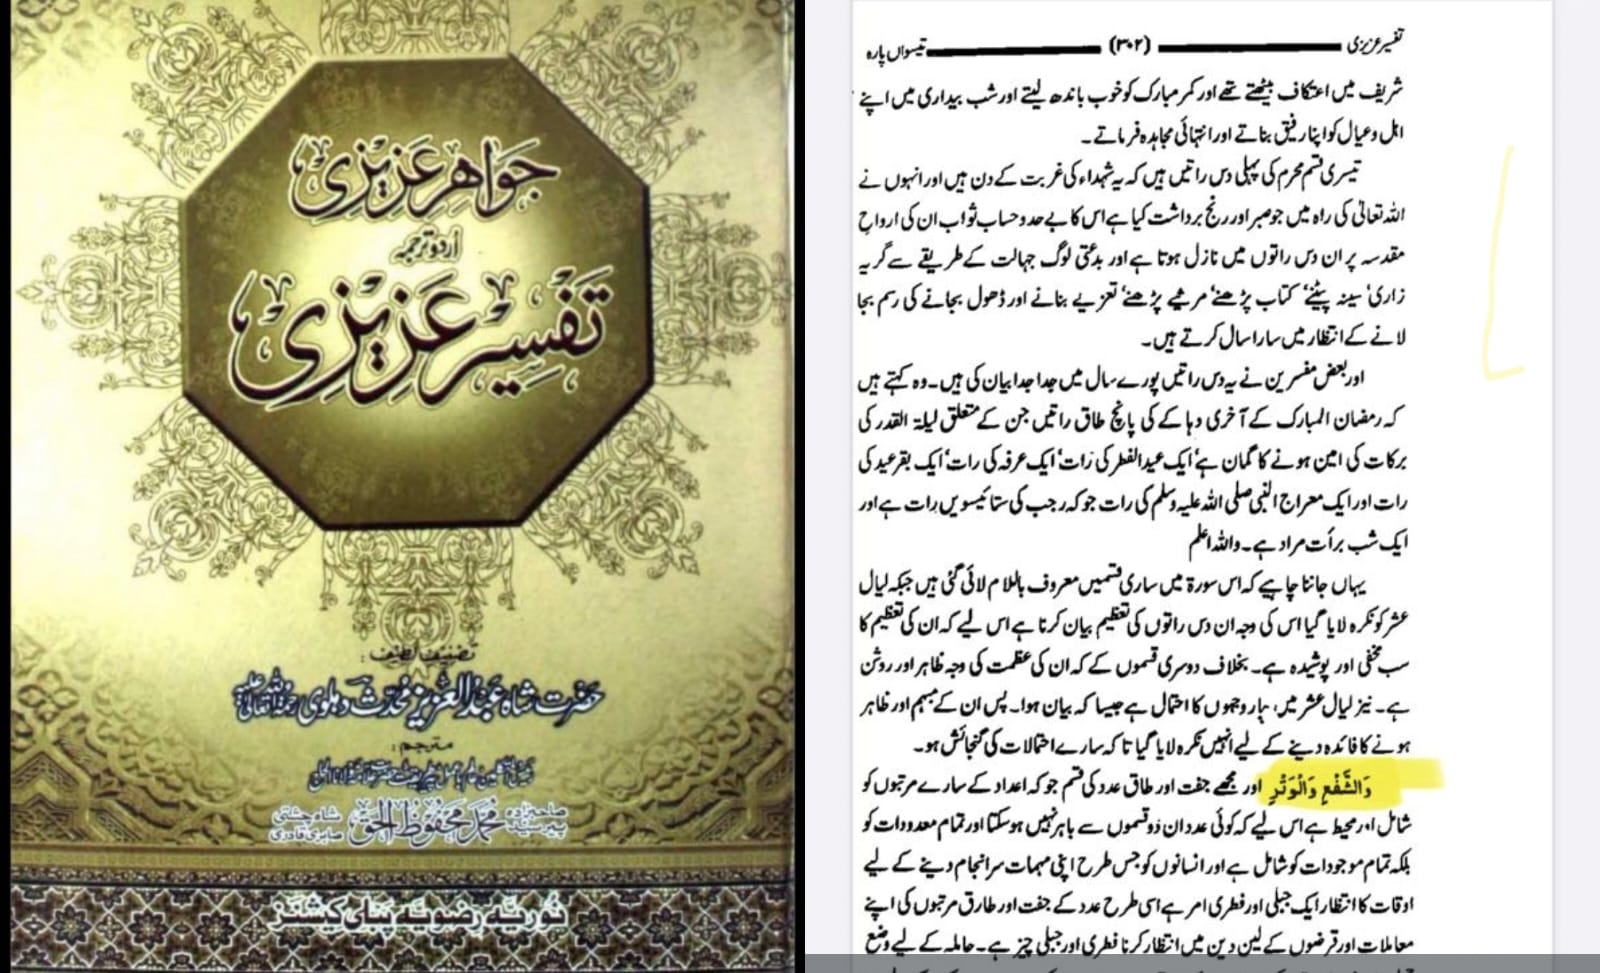 جواہر عزیزی
اردو ترجمہ
تفسیر عزیزی
تصنیف لطیف :
حضرت شاہ عبدالعزیز محدث دہلوی رحمۃ اللہ تعالیٰ علیہ
مترجم :
صاحبزادہ پیر سید محمد محفوظ الحق شاہ چشتی صابری قادری
نوریہ رضویہ پبلی کیشنز
تفسیر عزیزی (۳۰۲) تیسواں پارہ
شریف میں اعتکاف بیٹھتے تھے اور کمر مبارک کو خوب باندھ لیتے اور شب بیداری میں اپنے
اہل و عیال کو اپنا رفیق بناتے اور انتہائی مجاہدہ فرماتے۔
تیسری قسم محرم کی پہلی دس راتیں ہیں کہ یہ شہداء کی غربت کے دن ہیں اور انہوں نے
اللہ تعالیٰ کی راہ میں جو صبر اور رنج برداشت کیا ہے اس کا بے حد و حساب ثواب ان کی ارواح
مقدسہ پر ان دس راتوں میں نازل ہوتا ہے اور بدعتی لوگ جہالت کے طریقے سے گریہ
زاری' سینہ پیٹنے' کتاب پڑھنے' مرثیے پڑھنے' تعزیے بنانے اور ڈھول بجانے کی رسم بجا
لانے کے انتظار میں سارا سال کرتے ہیں۔
اور بعض مفسرین نے یہ دس راتیں پورے سال میں جدا جدا بیان کی ہیں۔ وہ کہتے ہیں
کہ رمضان المبارک کے آخری دہا کے کی پانچ طاق راتیں جن کے متعلق لیلۃ القدر کی
برکات کی امین ہونے کا گمان ہے' ایک عیدالفطر کی رات' ایک عرفہ کی رات' ایک بقر عید کی
رات اور ایک معراج النبی صلی اللہ علیہ وسلم کی رات جو کہ رجب کی ستائیسویں رات ہے اور
ایک شب برأت مراد ہے۔ واللہ اعلم
یہاں جاننا چاہیے کہ اس سورۃ میں ساری قسمیں معروف باللام لائی گئی ہیں جبکہ لیال
عشر کو نکرہ لایا گیا اس کی وجہ ان دس راتوں کی تعظیم بیان کرنا ہے اس لیے کہ ان کی تعظیم کا
سب مخفی اور پوشیدہ ہے۔ بخلاف دوسری قسموں کے کہ ان کی عظمت کی وجہ ظاہر اور روشن
ہے۔ نیز لیال عشر میں چار وجہوں کا احتمال ہے جیسا کہ بیان ہوا۔ پس ان کے مبہم اور ظاہر
ہونے کا فائدہ دینے کے لیے انہیں نکرہ لایا گیا تا کہ سارے احتمالات کی گنجائش ہو۔
وَالشَّفْعِ وَالْوَتْرِ اور مجھے جفت اور طاق عدد کی قسم جو کہ اعداد کے سارے مرتبوں کو
شامل اور محیط ہے اس لیے کہ کوئی عدد ان دو قسموں سے باہر نہیں ہو سکتا اور تمام معدودات کو
بلکہ تمام موجودات کو شامل ہے اور انسانوں کو جس طرح اپنی مہمات سرانجام دینے کے لیے
اوقات کا انتظار ایک جبلی اور فطری امر ہے اسی طرح عدد کے جفت اور طارق مرتبوں کی اپنے
معاملات اور قرضوں کے لین دین میں انتظار کرنا فطری اور جبلی چیز ہے۔ حاملہ کے لیے وضع